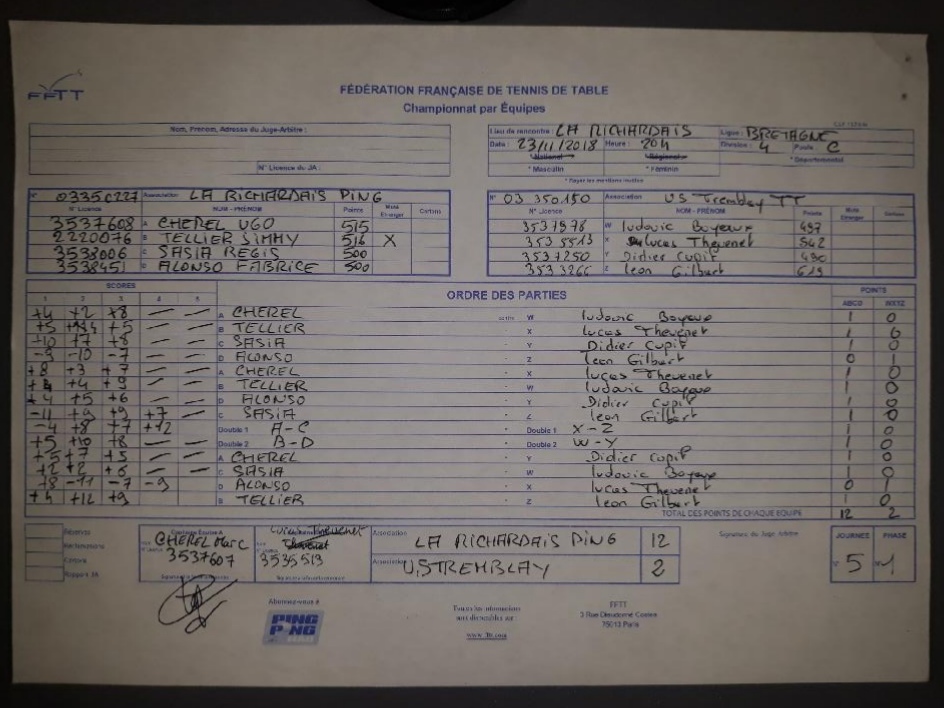 FFTT
FÉDÉRATION FRANÇAISE DE TENNIS DE TABLE
Championnat par Équipes
Nom, Prénom, Adresse du Juge-Arbitre :
N° Licence du JA :
Lieu de rencontre : LA RICHARDAIS Ligue : BRETAGNE
Date : 23/11/2018 Heure : 20h Division : 4 Poule : C
* National * Régional * Départemental
* Masculin * Féminin
* Rayer les mentions inutiles
N° 03350227 Association LA RICHARDAIS PING
N° Licence NOM - PRÉNOM Points Muté Etranger Cartons
3537608 A CHEREL UGO 515
2220076 B TELLIER SIMMY 516 X
3538006 C SASIA REGIS 500
3538451 D ALONSO FABRICE 500
N° 03 350150 Association US Tremblay TT
N° Licence NOM - PRÉNOM Points Muté Etranger Cartons
3537978 W ludovic Boyeux 497
353 5513 X lucas Thevenet 542
3537250 Y Didier Cupif 490
353 3266 Z leon Gilbert 619
SCORES ORDRE DES PARTIES POINTS
1 2 3 4 5 ABCD WXYZ
+4 +2 +8 — — A CHEREL contre W ludovic Boyeux 1 0
+5 +14 +5 — — B TELLIER - X lucas Thevenet 1 0
+10 +7 +8 — — C SASIA - Y Didier Cupif 1 0
-9 -10 -7 — — D ALONSO - Z leon Gilbert 0 1
+8 +3 +7 — — A CHEREL - X lucas Thevenet 1 0
+4 +4 +9 — — B TELLIER - W ludovic Boyeux 1 0
+4 +5 +6 — — D ALONSO - Y Didier Cupif 1 0
-11 +9 +9 +7 — C SASIA - Z leon Gilbert 1 0
-4 +8 +7 +12 Double 1 A-C - Double 1 X-Z 1 0
+5 +10 +8 — — Double 2 B-D - Double 2 W-Y 1 0
+5 +7 +5 — — A CHEREL - Y Didier cupif 1 0
+2 +2 +6 — — C SASIA - W ludovic Boyeux 1 0
+8 -11 -7 -9 D ALONSO - X lucas Thevenet 0 1
+4 +12 +9 B TELLIER - Z leon Gilbert 1 0
TOTAL DES POINTS DE CHAQUE EQUIPE 12 2
Réserves
Réclamations
Rapport JA
Capitaine Equipe A
CHEREL Marc
3537607
Lucas Thevenet
3535513
Association LA RICHARDAIS PING 12
Association U.S TREMBLAY 2
Signature du Juge Arbitre
JOURNEE PHASE
N° 5 N° 1
Abonnez-vous à
PING PONG
Toutes les informations
sont disponibles sur
www.fftt.com
FFTT
3 Rue Dieudonné Costes
75013 Paris